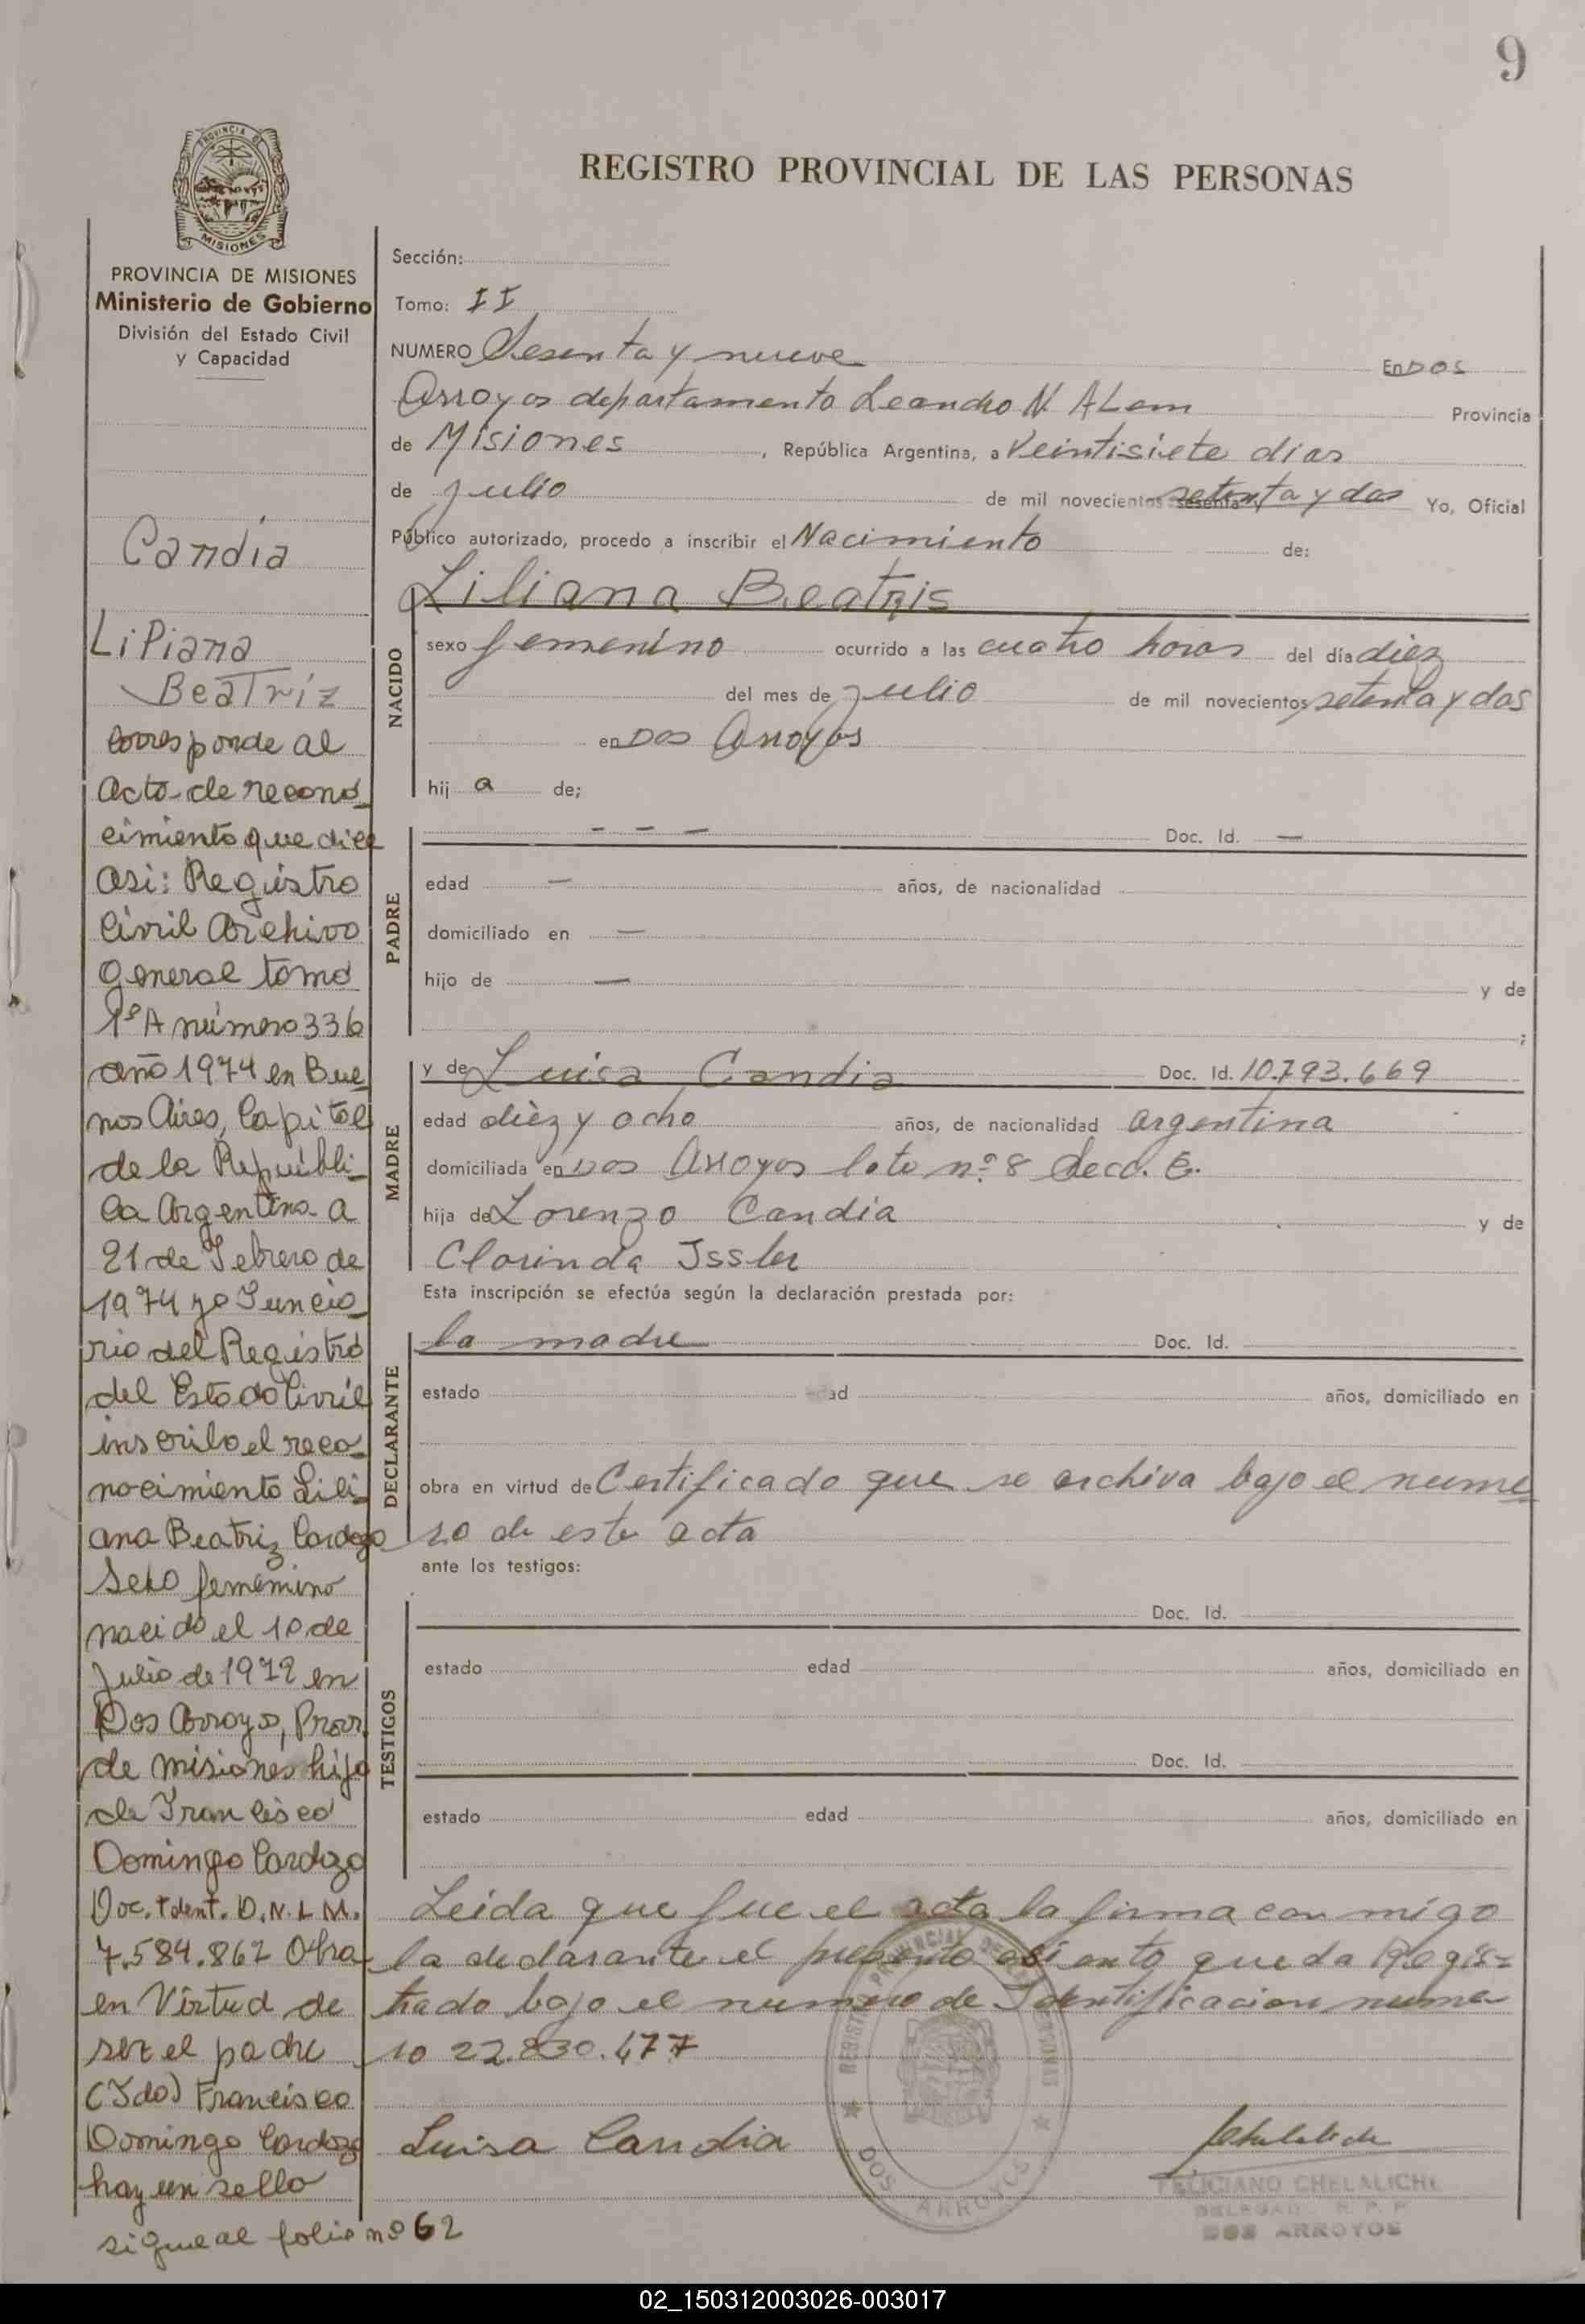 9
PROVINCIA DE
MISIONES
REGISTRO PROVINCIAL DE LAS PERSONAS
PROVINCIA DE MISIONES
Ministerio de Gobierno
División del Estado Civil
y Capacidad
Candia
Liliana
Beatriz
corresponde al
acto de recono
cimiento que dice
asi: Registro
Civil Archivo
general tomo
1º A número 336
año 1974 en Bue
nos Aires, Capital
de la Repúbli
ca Argentina a
21 de Febrero de
1974 yo Funcio
rio del Registro
del Estado Civil
inscribo el reco
nocimiento Lili
ana Beatriz Cardozo
Sexo femenino
nacido el 10 de
Julio de 1972 en
Dos Arroyos, Prov.
de misiones hijo
de Francisco
Domingo Cardozo
Doc. Ident. D.N.I. M.
7.584.862 Obra
en Virtud de
ser el padre
(Fdo) Francisco
Domingo Cardozo
hay un sello
sigue al folio nº 62
Sección:
Tomo: II
NUMERO Sesenta y nueve En DOS
Arroyos departamento Leandro N. ALem Provincia
de Misiones, República Argentina, a Veintisiete dias
de julio de mil novecientos sesenta setenta y dos Yo, Oficial
Público autorizado, procedo a inscribir el Nacimiento de:
Liliana Beatris
NACIDO
sexo femenino ocurrido a las cuatro horas del día diez
del mes de julio de mil novecientos setenta y dos
en Dos Arroyos
hij a de;
PADRE
- - - Doc. Id. -
edad - años, de nacionalidad
domiciliado en -
hijo de - y de
;
MADRE
y de Luisa Candia Doc. Id. 10.793.669
edad diez y ocho años, de nacionalidad argentina
domiciliada en Dos Arroyos lote nº 8 Secc. E.
hija de Lorenzo Candia y de
Clorinda Issler
Esta inscripción se efectúa según la declaración prestada por:
DECLARANTE
la madre Doc. Id.
estado edad años, domiciliado en
obra en virtud de Certificado que se archiva bajo el nume
ro de este acta
ante los testigos:
TESTIGOS
Doc. Id.
estado edad años, domiciliado en
Doc. Id.
estado edad años, domiciliado en
Leida que fue el acta la firma con migo
la declarante el presente asi ento queda Regis
trado bajo el numero de Identificacion nume
ro 22.830.477
Luisa Candia
REGISTRO PROVINCIAL DE LAS PERSONAS
DOS ARROYOS
FELICIANO CHELALICHE
DELEGADO R. P. P.
DOS ARROYOS
02_150312003026-003017